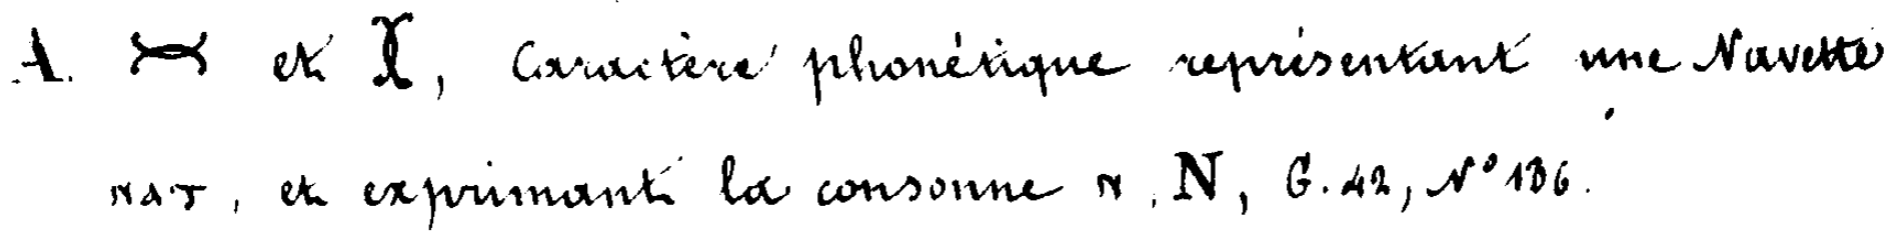 A. 𓋋 et 𓋋, Caractère phonétique représentant une Navette
ⲛⲁⲧ, et exprimant la consonne ⲛ, N, G. 42, N° 136.